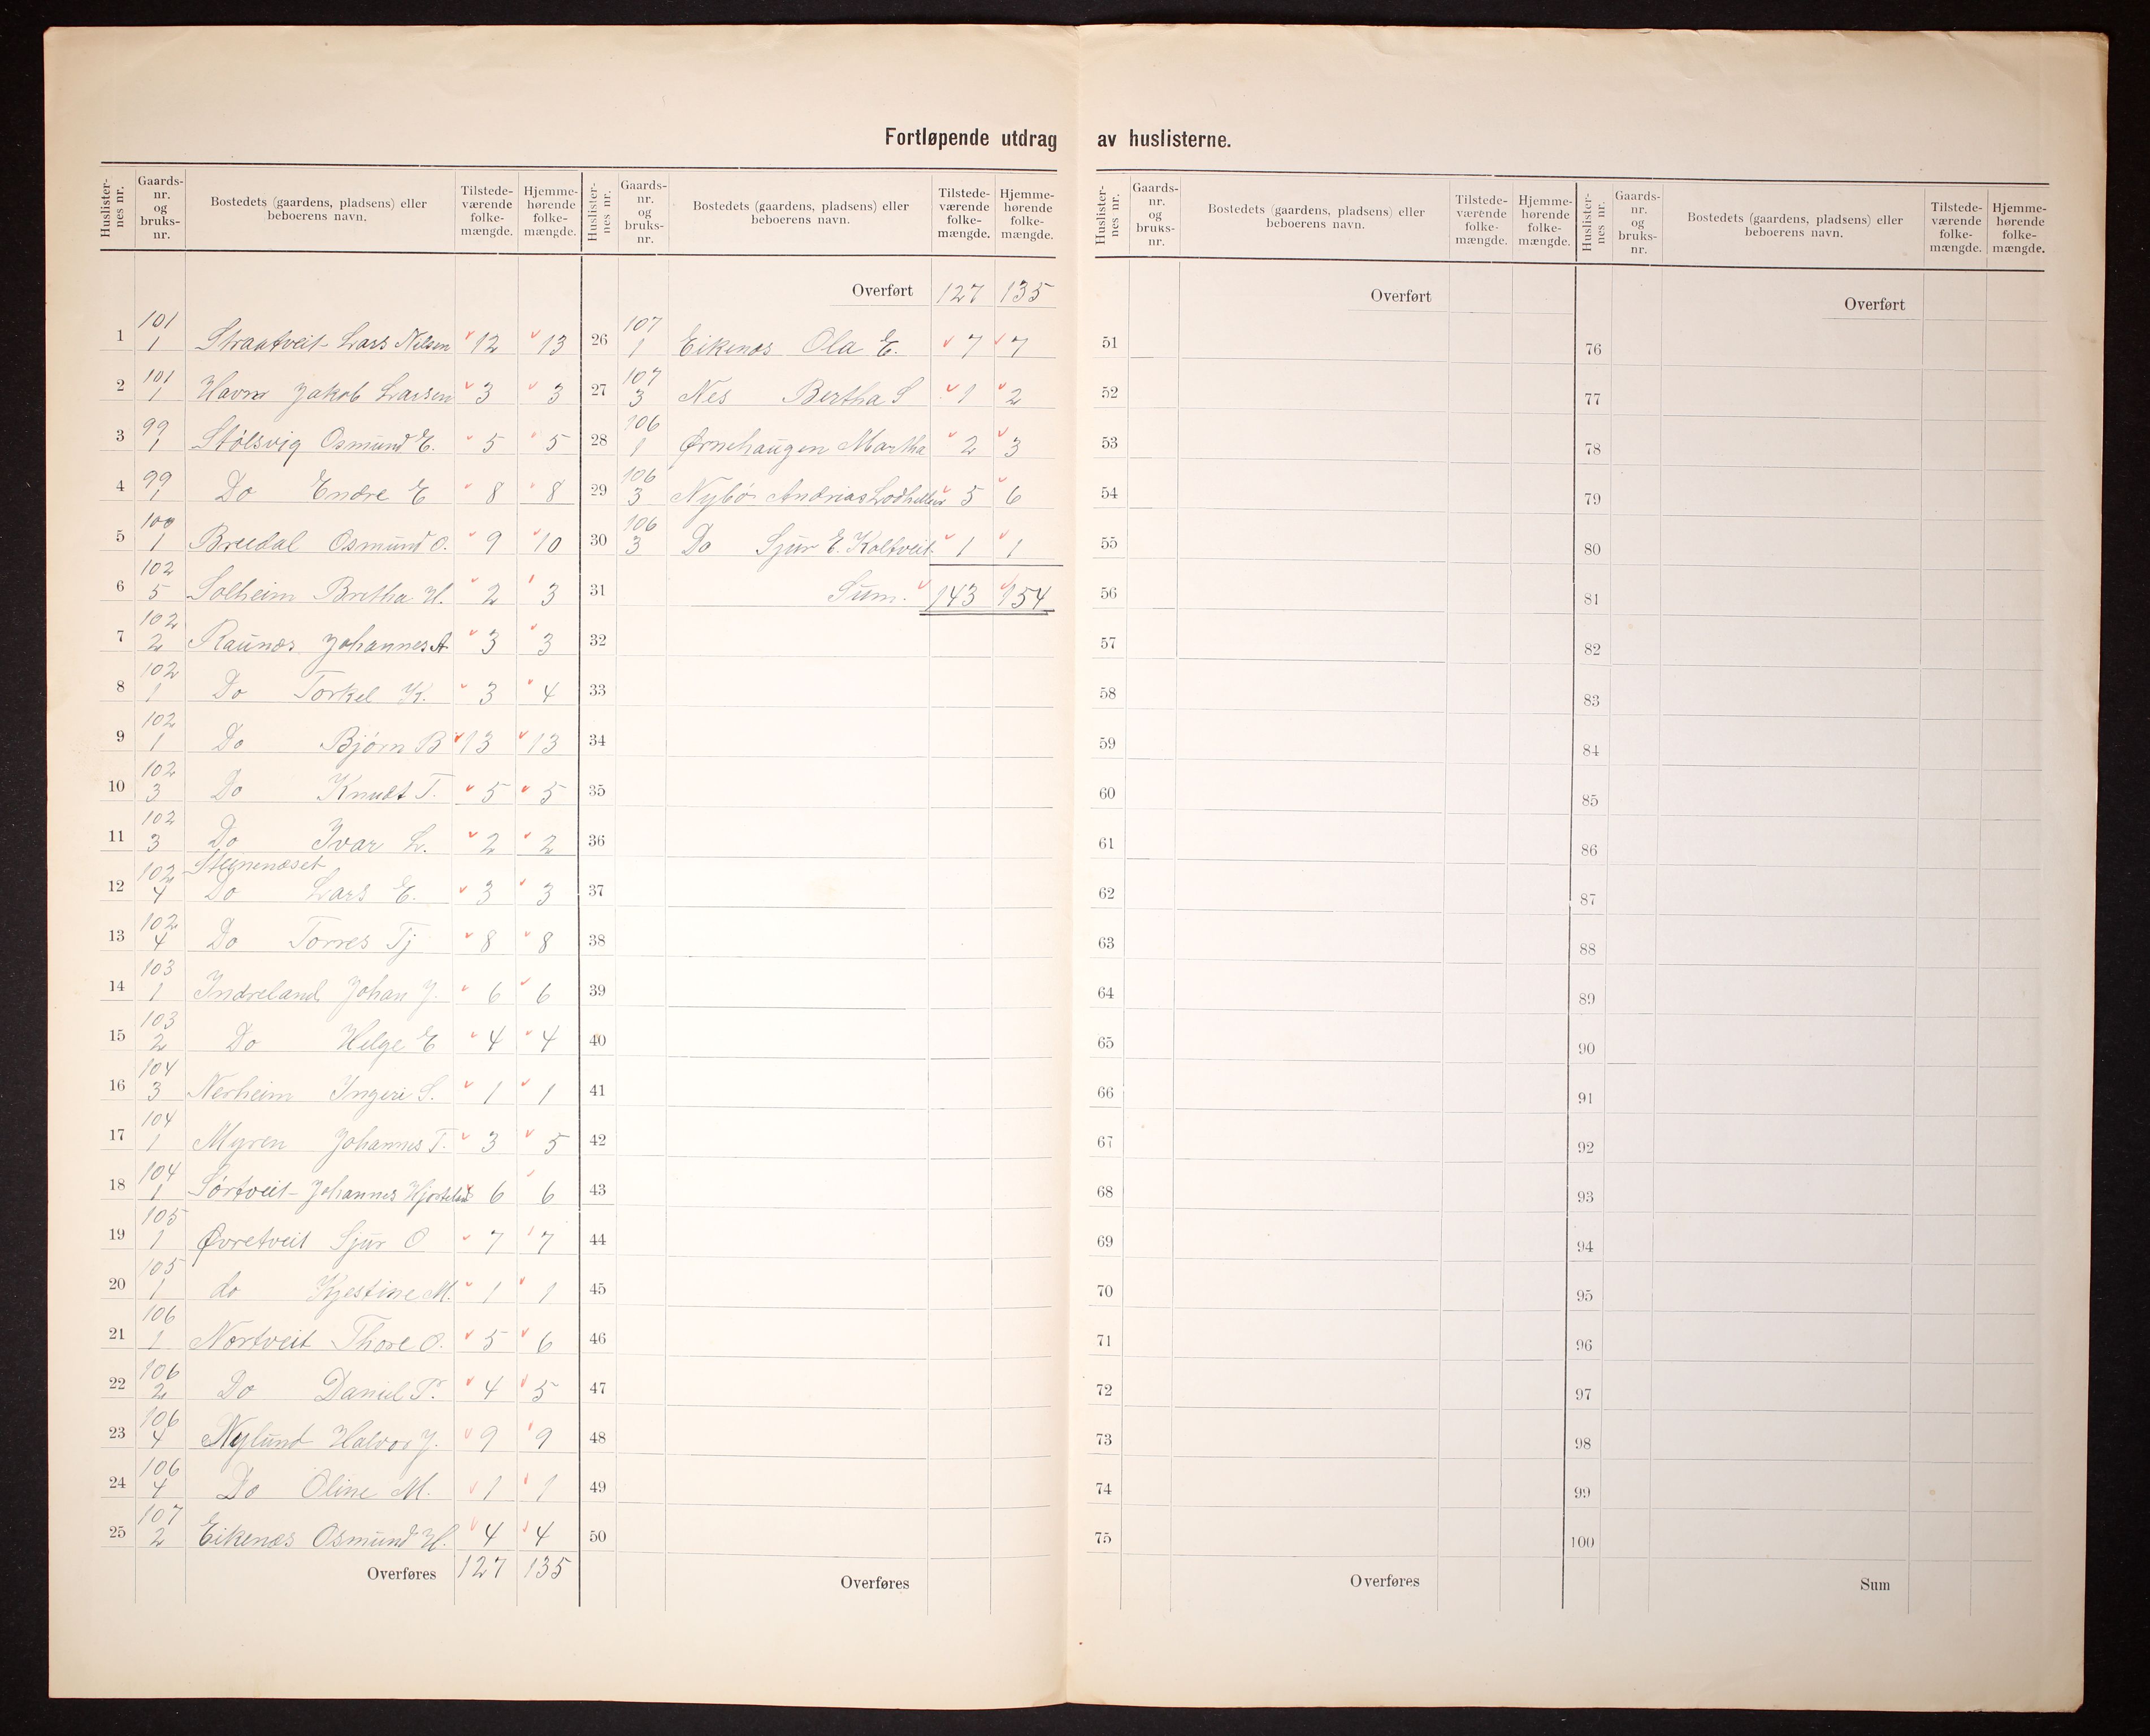 Fortløpende utdrag av huslisterne.
Huslister-nes nr. | Gaards-nr. og bruks-nr. | Bostedets (gaardens, pladsens) eller beboerens navn. | Tilstede-værende folke-mængde. | Hjemme-hørende folke-mængde.
1 | 101 1 | Strantveit - Lars Nilsen | 12 | 13
2 | 101 1 | Havn Jakob Larsen | 3 | 3
3 | 99 1 | Stölsvig Osmund E. | 5 | 5
4 | 99 1 | Do Endre E | 8 | 8
5 | 100 1 | Bredal Osmund O. | 9 | 10
6 | 102 5 | Solheim Britha H. | 2 | 3
7 | 102 2 | Raunes Johannes A | 3 | 3
8 | 102 1 | Do Torkel K. | 3 | 4
9 | 102 1 | Do Bjørn B | 13 | 13
10 | 102 3 | Do Knudt T. | 5 | 5
11 | 102 3 | Do Ivar L. | 2 | 2
Stegnenæset
12 | 102 4 | Do Lars E. | 3 | 3
13 | 102 4 | Do Torres Tj | 8 | 8
14 | 103 1 | Indreland Johan J. | 6 | 6
15 | 103 2 | Do Helge E | 4 | 4
16 | 104 3 | Nerheim Ingeri S. | 1 | 1
17 | 104 1 | Myren Johannes T. | 3 | 5
18 | 104 1 | Sörtveit - Johannes Hjorteland | 6 | 6
19 | 105 1 | Øvretveit Sjur O | 7 | 7
20 | 105 1 | do Kjestine M. | 1 | 1
21 | 106 1 | Nortveit Thore O. | 5 | 6
22 | 106 2 | Do Daniel P. | 4 | 5
23 | 106 4 | Nylund Halvor J. | 9 | 9
24 | 106 4 | Do Oline M. | 1 | 1
25 | 107 2 | Eikenes Osmund H. | 4 | 4
Overføres | 127 | 135
Huslister-nes nr. | Gaards-nr. og bruks-nr. | Bostedets (gaardens, pladsens) eller beboerens navn. | Tilstede-værende folke-mængde. | Hjemme-hørende folke-mængde.
Overført | 127 | 135
26 | 107 1 | Eikenes Ola E. | 7 | 7
27 | 107 3 | Nes Bertha S | 1 | 2
28 | 106 1 | Ørnehaugen Martha | 2 | 3
29 | 106 3 | Nybö Andrias | 5 | 6
30 | 106 3 | Do Sjur E. Koltveit | 1 | 1
31 | Sum. | 143 | 154
32
33
34
35
36
37
38
39
40
41
42
43
44
45
46
47
48
49
50
Overføres
Huslister-nes nr. | Gaards-nr. og bruks-nr. | Bostedets (gaardens, pladsens) eller beboerens navn. | Tilstede-værende folke-mængde. | Hjemme-hørende folke-mængde.
Overført
51
52
53
54
55
56
57
58
59
60
61
62
63
64
65
66
67
68
69
70
71
72
73
74
75
Overføres
Huslister-nes nr. | Gaards-nr. og bruks-nr. | Bostedets (gaardens, pladsens) eller beboerens navn. | Tilstede-værende folke-mængde. | Hjemme-hørende folke-mængde.
Overført
76
77
78
79
80
81
82
83
84
85
86
87
88
89
90
91
92
93
94
95
96
97
98
99
100
Sum